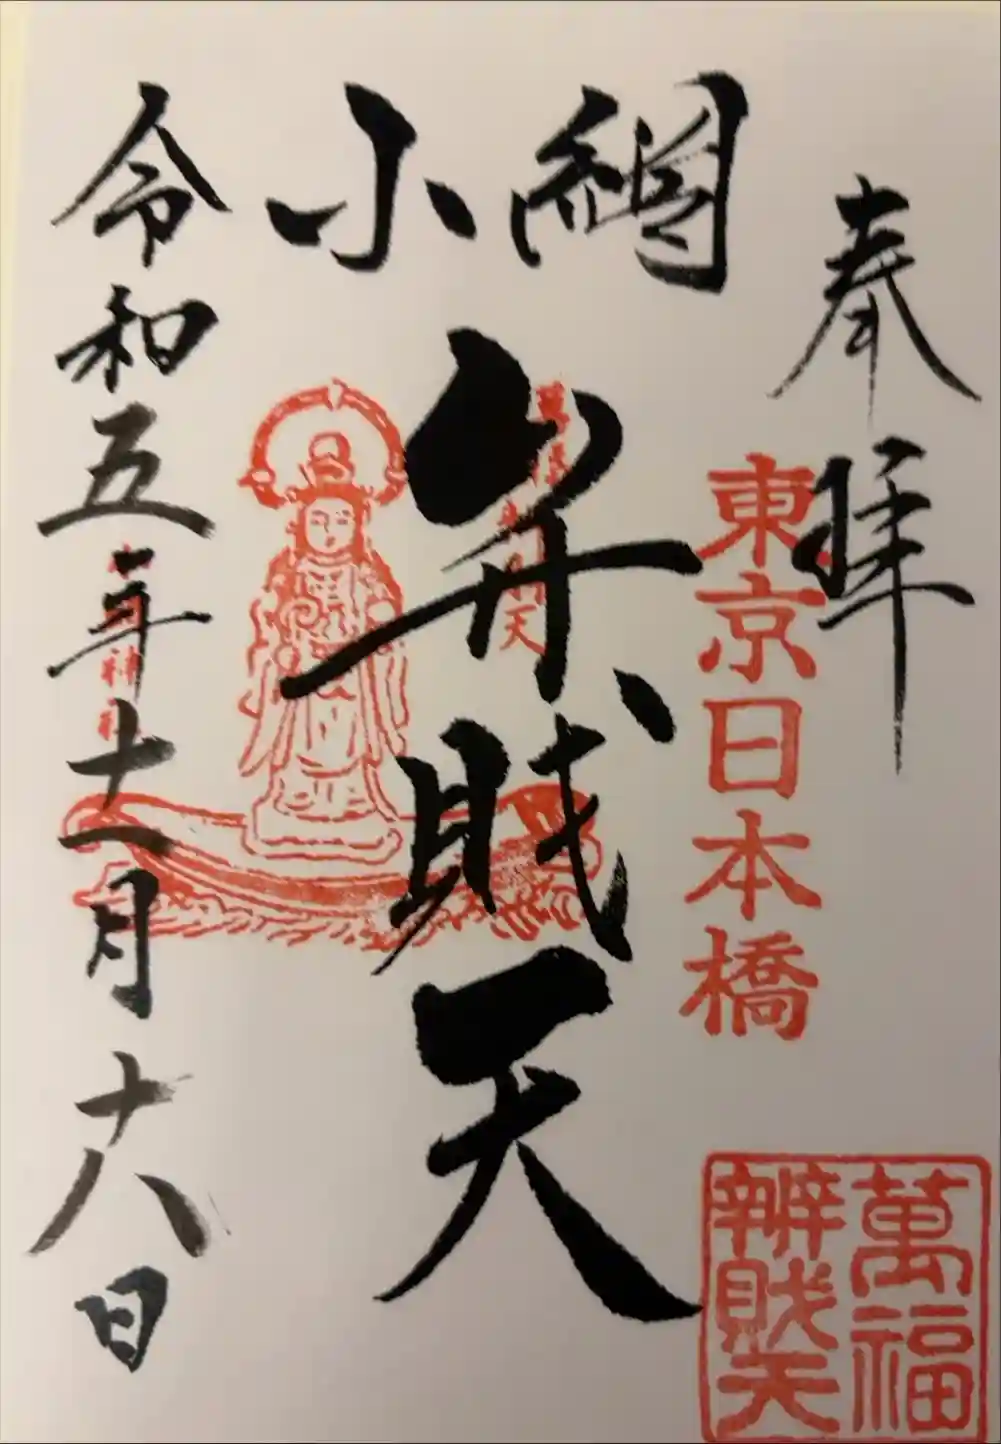 奉拝
東京日本橋
萬福
辨財天
小網
弁財天
令和五年十一月十八日